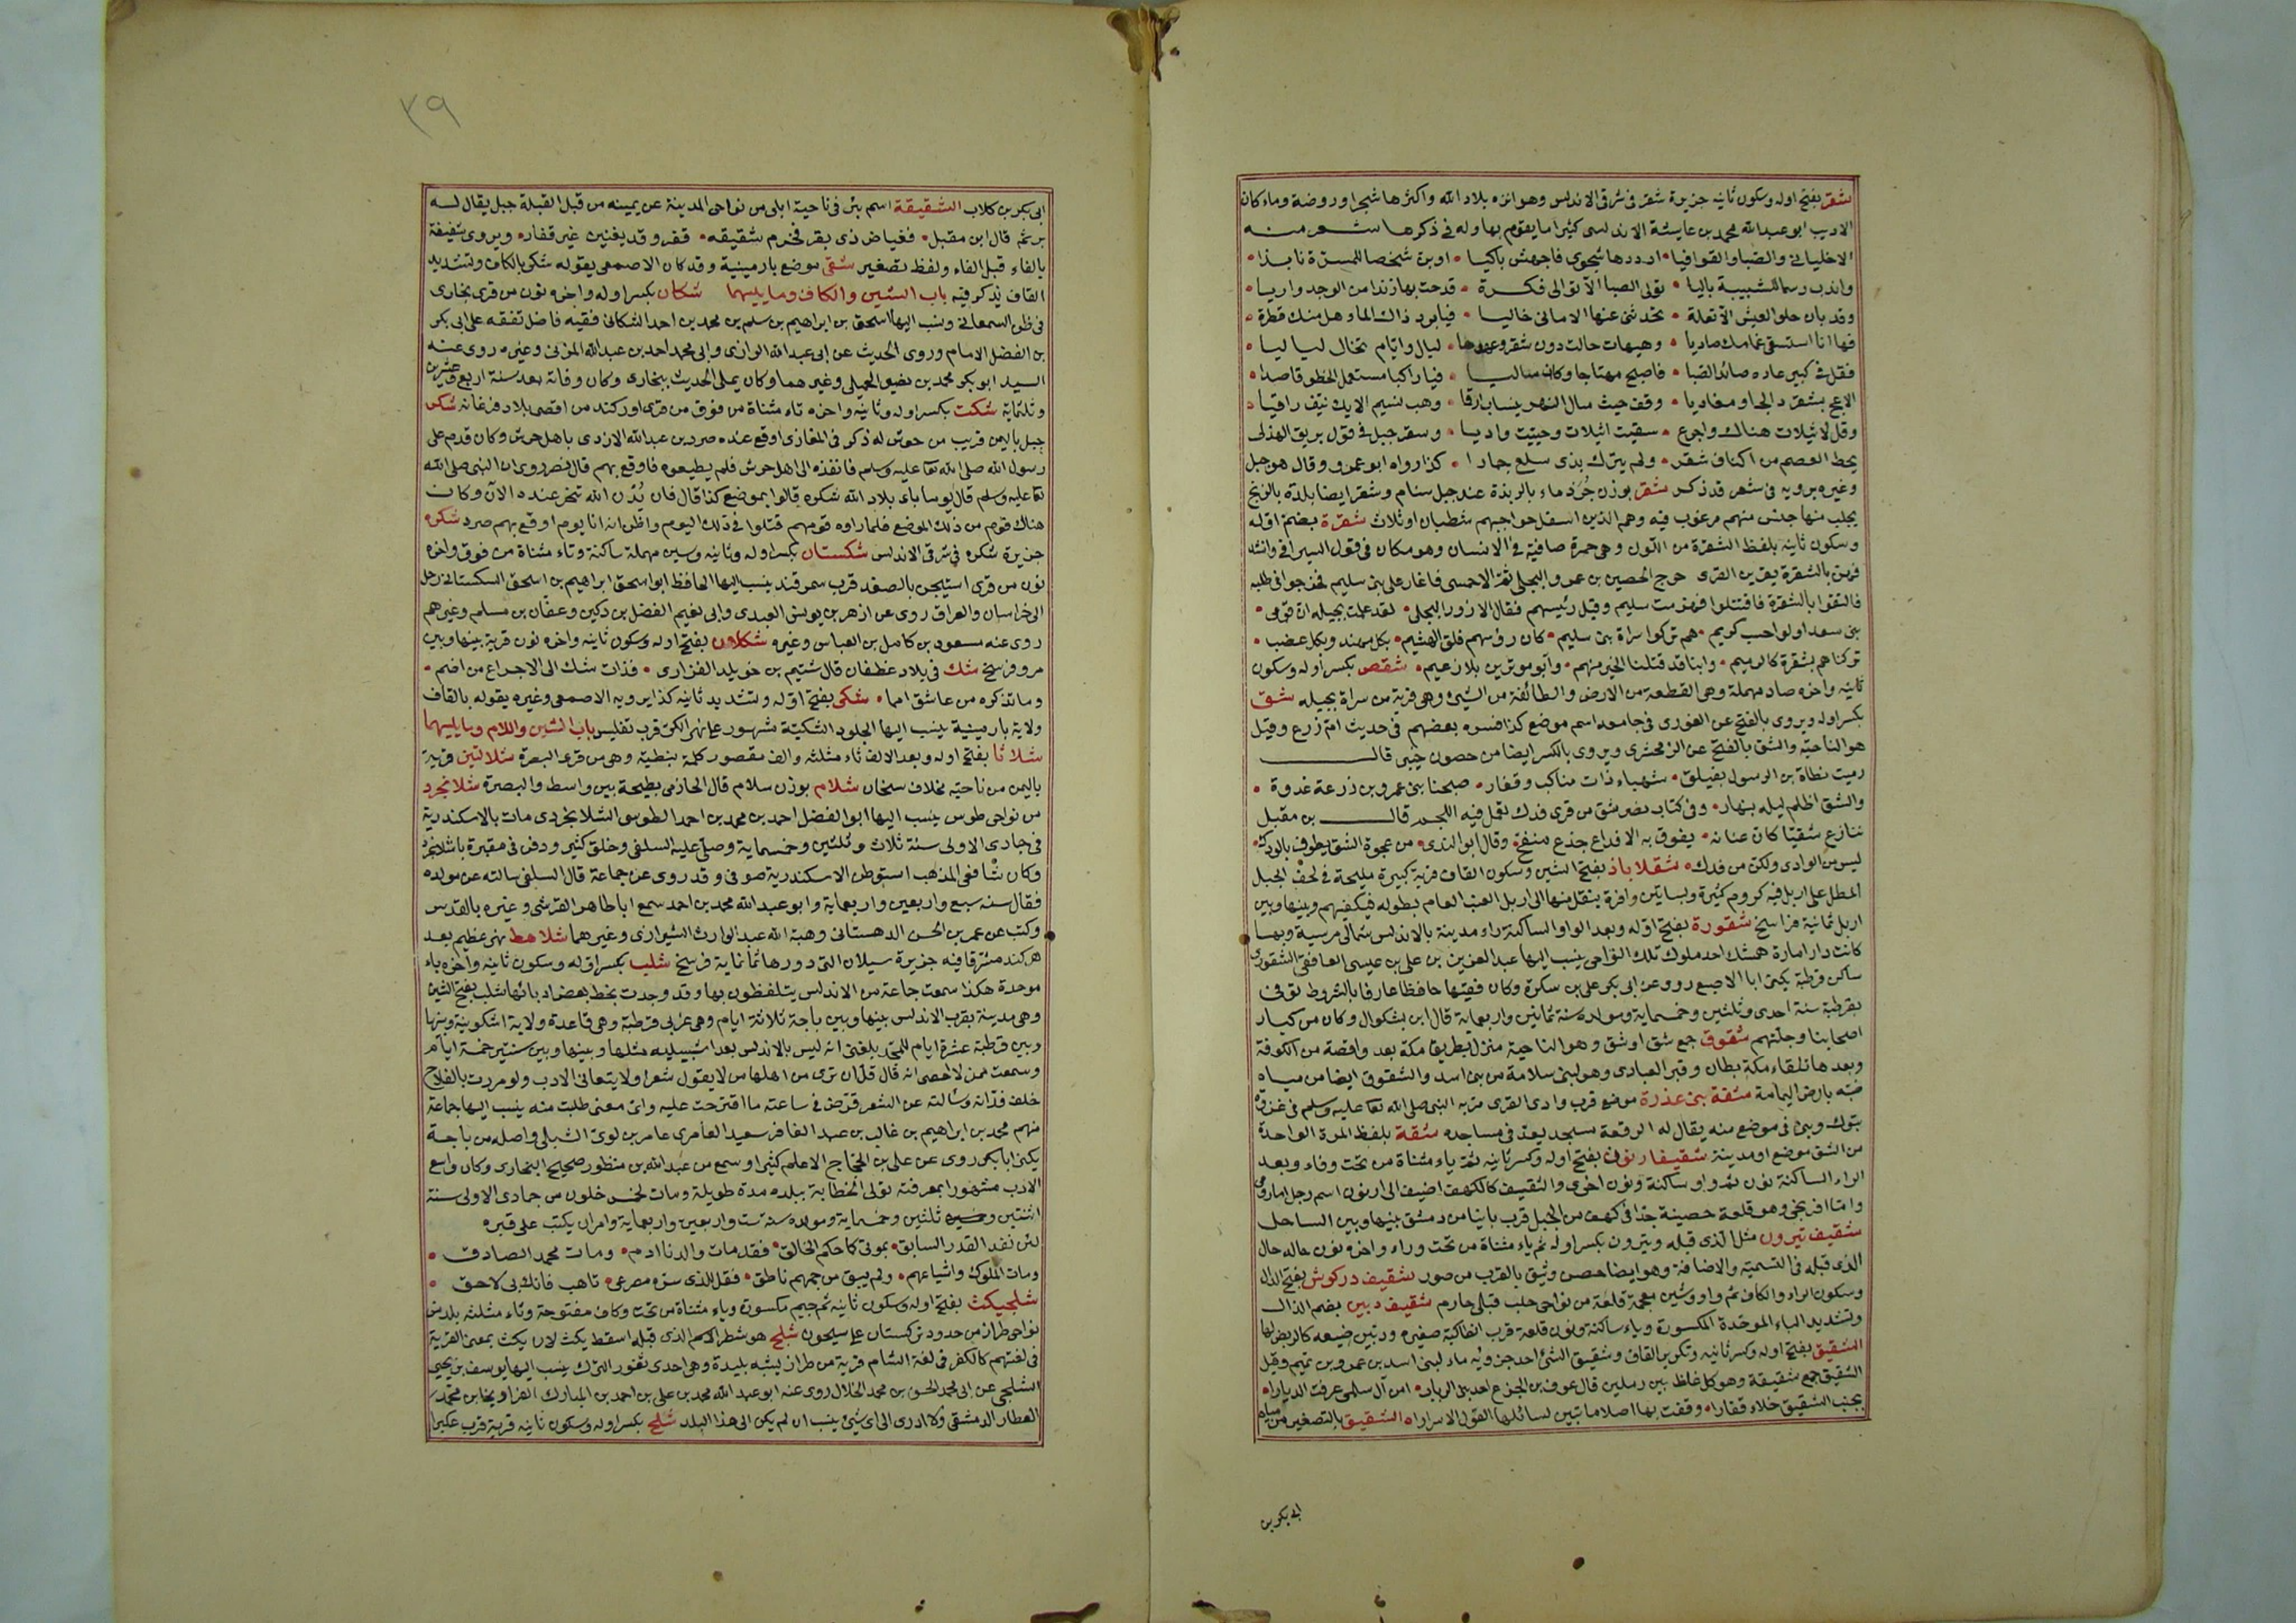 شقر بفتح اوله وسكون ثانيه جزيرة شقر فى شرقى الاندلس وهو انزه بلاد الله واكثرها شجرا وروضة وماء كان
الاديب ابو عبد الله محمد بن عايشة الاندلسى كثيرا ما يقوم بها وله فى ذكرها شعر منه
الا خليانى والصبا والقوافيا • ارددها شجوى فاجهش باكيا • اوبن شخصا للمسرة نابذا •
واندب رسما للشبيبة باليا • تولى الصبا الا توالى فكرة • قدحت بها زندا من الوجد واريا •
وقد بان حلو العيش الا تعلة • تحدثنى عنها الامانى خاليا • فيا برد ذاك الماء هل منك قطرة •
فها انا استسقى غمامك صاديا • وهيهات حالت دون شقر وعهدها • ليال وايام تخال لياليا •
فقل فى كبير عاده صائد الظبا • فاصبح مهتاجا وكان مساليا • فيا راكبا مستعمل الخطو قاصدا •
الا عج بشقر رائحا ومغاديا • وقف حيث سال النهر ينساب ارقا • وهب نسيم الايك نيف راقيا •
وقل لاثيلات هناك واجرع • سقيت اثيلات وحييت واديا • وشقر جبل فى قول بريق الهذلى
يحط العصم من اكناف شقر • ولم يترك بذى سلع حمارا • كذا رواه ابو عمرو وقال هو جبل
وغيره يرويه فى شعر قد ذكر شقر بوزن جرذ ماء بالربذة عند جبل سنام وشقر ايضا بلدة بالزنج
يجلب منها جنس منهم مرغوب فيه وهم الذين اسفل حواجبهم شطبان او ثلاث شقرة بضم اوله
وسكون ثانيه بلفظ الشقرة من اللون وهى حمرة صافية فى الانسان وهو مكان فى قول السيرافى وانشد
فهن بالشقرة يفرين القرى خرج الحصين بن عمرو البجلى ثم الاحمسى فاغار على بنى سليم فخرجوا فى طلبه
فالتقوا بالشقرة فاقتتلوا فهزمت سليم وقتل رئيسهم فقال الازور البجلى • لقد علمت بجيلة ان قومى •
بنى سعد اولو احسب كريم • هم تركوا سراة بنى سليم • كان رؤسهم فلق الهشيم • بكل مهند وبكل عضب •
تركناهم بشقرة كالرميم • وابنا قد قتلنا الخير منهم • وآبوا موترين بلا زعيم • شقص بكسر اوله وسكون
ثانيه واخره صاد مهملة وهى القطعة من الارض والطائفة من الشىء وهى قرية من سراة بجيله شق
بكسر اوله ويروى بالفتح عن الغورى فى جامعه اسم موضع كذا فسره بعضهم فى حديث ام زرع وقيل
هو الناحية والشق بالفتح عن الزمخشرى ويروى بالكسر ايضا من حصون خيبر قال
رميت نطاة بن الرسول بفيلق • شهباء ذات مناكب وفقار • صبحنا بنى عمرو بن زرعة غدوة •
والشق اظلم ليله بنهار • وفى كتاب نصر شق من قرى فدك تعمل فيه اللجم قال بن مقبل
ينازع شقيا كان عنانه • يفوق به الاقداع جذع منقح • وقال ابو الندى • من عجوة الشق يطوف بالودك •
ليس من الوادى ولكن من فدك • شقلاباذ بفتح الشين وسكون القاف قرية كبيرة مليحة فى لحف الجبل
المطل على اربل فيه كروم كثيرة وبساتين وافرة ينقل منها الى اربل العنب العام بطوله فيكفيهم وبينها وبين
اربل ثمانية فراسخ شقورة بفتح اوله وبعد الواو الساكنة راء مدينة بالاندلس شمالى مرسية وبها
كانت دار امارة همشك احد ملوك تلك النواحى ينسب اليها عبد العزيز بن على بن عيسى الغافقى الشقورى
ساكن قرطبة يكنى ابا الاصبع روى عن ابى بكر على بن سكرة وكان فقيها حافظا عارفا بالشروط توفى
بقرطبة سنة احدى وثلثين وخمسماية ومولده سنة ثمانين واربعماية قال ابن بشكوال وكان من كبار
اصحابنا وجلتهم شقوق جمع شق او شق وهو الناحية منزل بطريق مكة بعد واقصة من الكوفة
وبعدها تلقاء مكة بطان وقبر العبادى وهو لبنى سلامة من بنى اسد والشقوق ايضا من مياه
ضبه بارض اليمامة شقة بنى عذرة موضع قرب وادى القرى مر به النبى صلى الله تعا عليه وسلم فى غزوة
تبوك وبنى فى موضع منه يقال له الرقعة مسجد يعد فى مساجده شقة بلفظ المرة الواحدة
من الشق موضع او مدينة شقيفارنون بفتح اوله وكسر ثانيه ثم ياء مثناة من تحت وفاء وبعد
الراء الساكنة نون ثم واو ساكنة ونون اخرى والشقيف كالكهف اضيف الى ارنون اسم رجل اما رومى
واما افرنجى وهو قلعة حصينة جدا فى كهف من الجبل قرب بانياس من دمشق بينها وبين الساحل
شقيف تيرون مثل الذى قبله وتيرون بكسر اوله ثم ياء مثناة من تحت وراء واخره نون حاله حال
الذى قبله فى التسمية والاضافة وهو ايضا حصن وثيق بالقرب من صور شقيف دركوش بفتح الدال
وسكون الراء والكاف ثم واو وشين معجمة قلعة من نواحى حلب قبلى حارم شقيف دبين بضم الدال
وتشديد الباء الموحدة المكسورة وياء ساكنة ونون قلعة قرب انطاكية صغيره ودبين ضيعه كالربض لها
الشقيق بفتح اوله وكسر ثانيه وتكرير القاف وشقيق الشئ احد جزويه ماء لبنى اسد بن عمرو بن تميم وقيل
الشقيق جمع شقيقة وهو كل غلظ بين رملين قال عوف بن الجزع احد بنى الرباب • امن آل سلمى عرفت الديارا •
بجنب الشقيق خلاء قفارا • وقفت بها اصلا ما تبين لسائلها القول الا سرارا • الشقيق بالتصغير من مياه
ابى بكر بن
٣٩
ابى بكر بن كلاب الشقيقة اسم بئر فى ناحية ابلى من نواحى المدينة عن يمينه من قبل القبلة جبل يقال له
برثم قال ابن مقبل • فغياض ذى بقر فحزم شقيقه • قفر وقد يغنين غير قفار • ويروى شفيفة
بالفاء قبل الفاء ولفظ تصغير شقى موضع بارمينية وقد كان الاصمعى يقوله شكى بالكاف وتشديد
القاف يذكر فيه باب الشين والكاف وما يليهما شكان بكسر اوله واخره نون من قرى بخارى
فى ظن السمعانى ونسب اليها اسحق بن ابراهيم بن سلم بن محمد بن احمد الشكانى فقيه فاضل تفقه على ابى بكر
بن الفضل الامام وروى الحديث عن ابى عبد الله الرازى وابى محمد احمد بن عبد الله المزنى وغيره روى عنه
السيد ابو بكر محمد بن نصر الجميلى وغيرهما وكان يملى الحديث ببخارى وكان وفاته بعد سنة اربع وعشرين
وثلثماية شكت بكسر اوله وثانيه واخره تاء مثناة من فوق من قرى اوركند من اقصى بلاد فرغانه شكر
جبل باليمن قريب من جرش له ذكر فى المغازى اوقع عنده صرد بن عبد الله الازدى باهل جرش وكان قدم على
رسول الله صلى الله تعا عليه وسلم فانفذه الى اهل جرش فلم يطيعوه فاوقع بهم قال نصر روى ان النبى صلى الله
تعا عليه وسلم قال يوما باى بلاد الله شكره قالوا بموضع كذا قال فان بدن الله تنحر عنده الآن وكان
هناك قوم من ذلك الموضع فلما راوه قومهم قتلوا فى ذلك اليوم واظن انه انا يوم اوقع بهم صرد شكره
جزيرة شكره فى شرقى الاندلس شكستان بكسر اوله وثانيه وسين مهملة ساكنة وتاء مثناة من فوق واخره
نون من قرى اشتيخن بالصغد قرب سمرقند ينسب اليها الحافظ ابو اسحق ابراهيم بن اسحق الشكستانى رحل
الى خراسان والعراق روى عن ازهر بن يونس العبدى وابى نعيم الفضل بن دكين وعفان بن مسلم وغيرهم
روى عنه مسعود بن كامل بن العباس وغيره شكلان بفتح اوله وسكون ثانيه واخره نون قرية بينها وبين
مرو فرسخ شك فى بلاد غطفان قال شتيم بن خويلد الفزارى • فذات شك الى الاجراع من اضم •
وما تذكره من عاشق امما • شكى بفتح اوله وتشديد ثانيه كذا يرويه الاصمعى وغيره يقوله بالقاف
ولاية بارمينية ينسب اليها الجلود الشكية مشهور على نهر الكر قرب تفليس باب الشين واللام وما يليهما
شلاثا بفتح اوله وبعد الالف ثاء مثلثه والف مقصور كلمة نبطية وهى من قرى البصرة شلالتين قرية
باليمن من ناحية مخلاف سنحان شلام بوزن سلام قال الحازمى بطيحة بين واسط والبصرة شلانجرد
من نواحى طوس ينسب اليها ابو الفضل احمد بن محمد بن احمد الطوسى الشلانجردى مات بالاسكندرية
فى جمادى الاولى سنة ثلاث وثلثين وخمسماية وصلى عليه السلفى وخلق كثير ودفن فى مقبرة باشلانجرد
وكان شافعى المذهب استوطن الاسكندرية صوفى وقد روى عن جماعة قال السلفى سالته عن مولده
فقال سنه سبع واربعين واربعماية وابو عبد الله محمد بن احمد سمع ابا طاهر القرشى وغيره بالقدس
وكتب عن عمر بن الحسن الدهستانى وهبة الله عبد الوارث الشيرازى وغيرهما شلاهط بحر عظيم بعد
هركند مشرقا فيه جزيرة سيلان التى دورها ثمانماية فرسخ شلب بكسر اوله وسكون ثانيه واخره باء
موحدة هكذا سمعت جماعة من الاندلس يتلفظون بها وقد وجدت بخط بعض ادبائها شلب بفتح الشين
وهى مدينة بغرب الاندلس بينها وبين باجة ثلاثة ايام وهى غربى قرطبة وهى قاعدة ولاية اشكونية وبينها
وبين قرطبة عشرة ايام للمجد بلغنى انه ليس بالاندلس بعد اشبيليه مثلها وبينها وبين شنترين خمسة ايام
وسمعت ممن لا احصى انه قال قل ان ترى من اهلها من لا يقول شعرا ولا يتعانى الادب ولو مررت بالفلاح
خلف فدانه وسالته عن الشعر قرض فى ساعته ما اقترحت عليه واى معنى طلبت منه ينسب اليها جماعة
منهم محمد بن ابراهيم بن غالب بن عبد الغافر سعيد العامرى عامر بن لوى الشبلى واصله من باجة
يكنى ابا بكر روى عن على بن الحجاج الاعلم كثيرا وسمع من عبد الله بن منظور صحيح البخارى وكان واسع
الادب مشهورا بمعرفته تولى الخطابة ببلده مدة طويلة ومات لخمس خلون من جمادى الاولى سنة
اثنتين وثلثين وخمسماية ومولده سنه ست واربعين واربعماية وامر ان يكتب على قبره
لئن نفذ القدر السابق • بموتى كما حكم الخالق • فقد مات والدنا ادم • ومات محمد الصادق •
ومات الملوك واشياعهم • ولم يبق من جمعهم ناطق • فقل للذى سره مصرعى • تاهب فانك بى لاحق •
شلجيكث بفتح اوله وسكون ثانيه ثم جيم مكسورة وياء مثناة من تحت وكاف مفتوحة وثاء مثلثه بلد من
نواحى طراز من حدود تركستان على سيحون شلج هو شطر الاسم الذى قبله اسقط يكث لان يكث بمعنى القرية
فى لغتهم كالكفر فى لغة الشام قرية من طراز يشبه بليدة وهى احدى ثغور الترك ينسب اليها يوسف بن يحيى
الشلجى عن ابى محمد الحسن بن محمد الخلال روى عنه ابو عبد الله محمد بن على بن احمد بن المبارك الفزا ويحيى بن محمد
العطار الدمشقى ولا ادرى الى اى شئ ينسب ان لم يكن الى هذا البلد شلح بكسر اوله وسكون ثانيه قرية قرب عكبرا